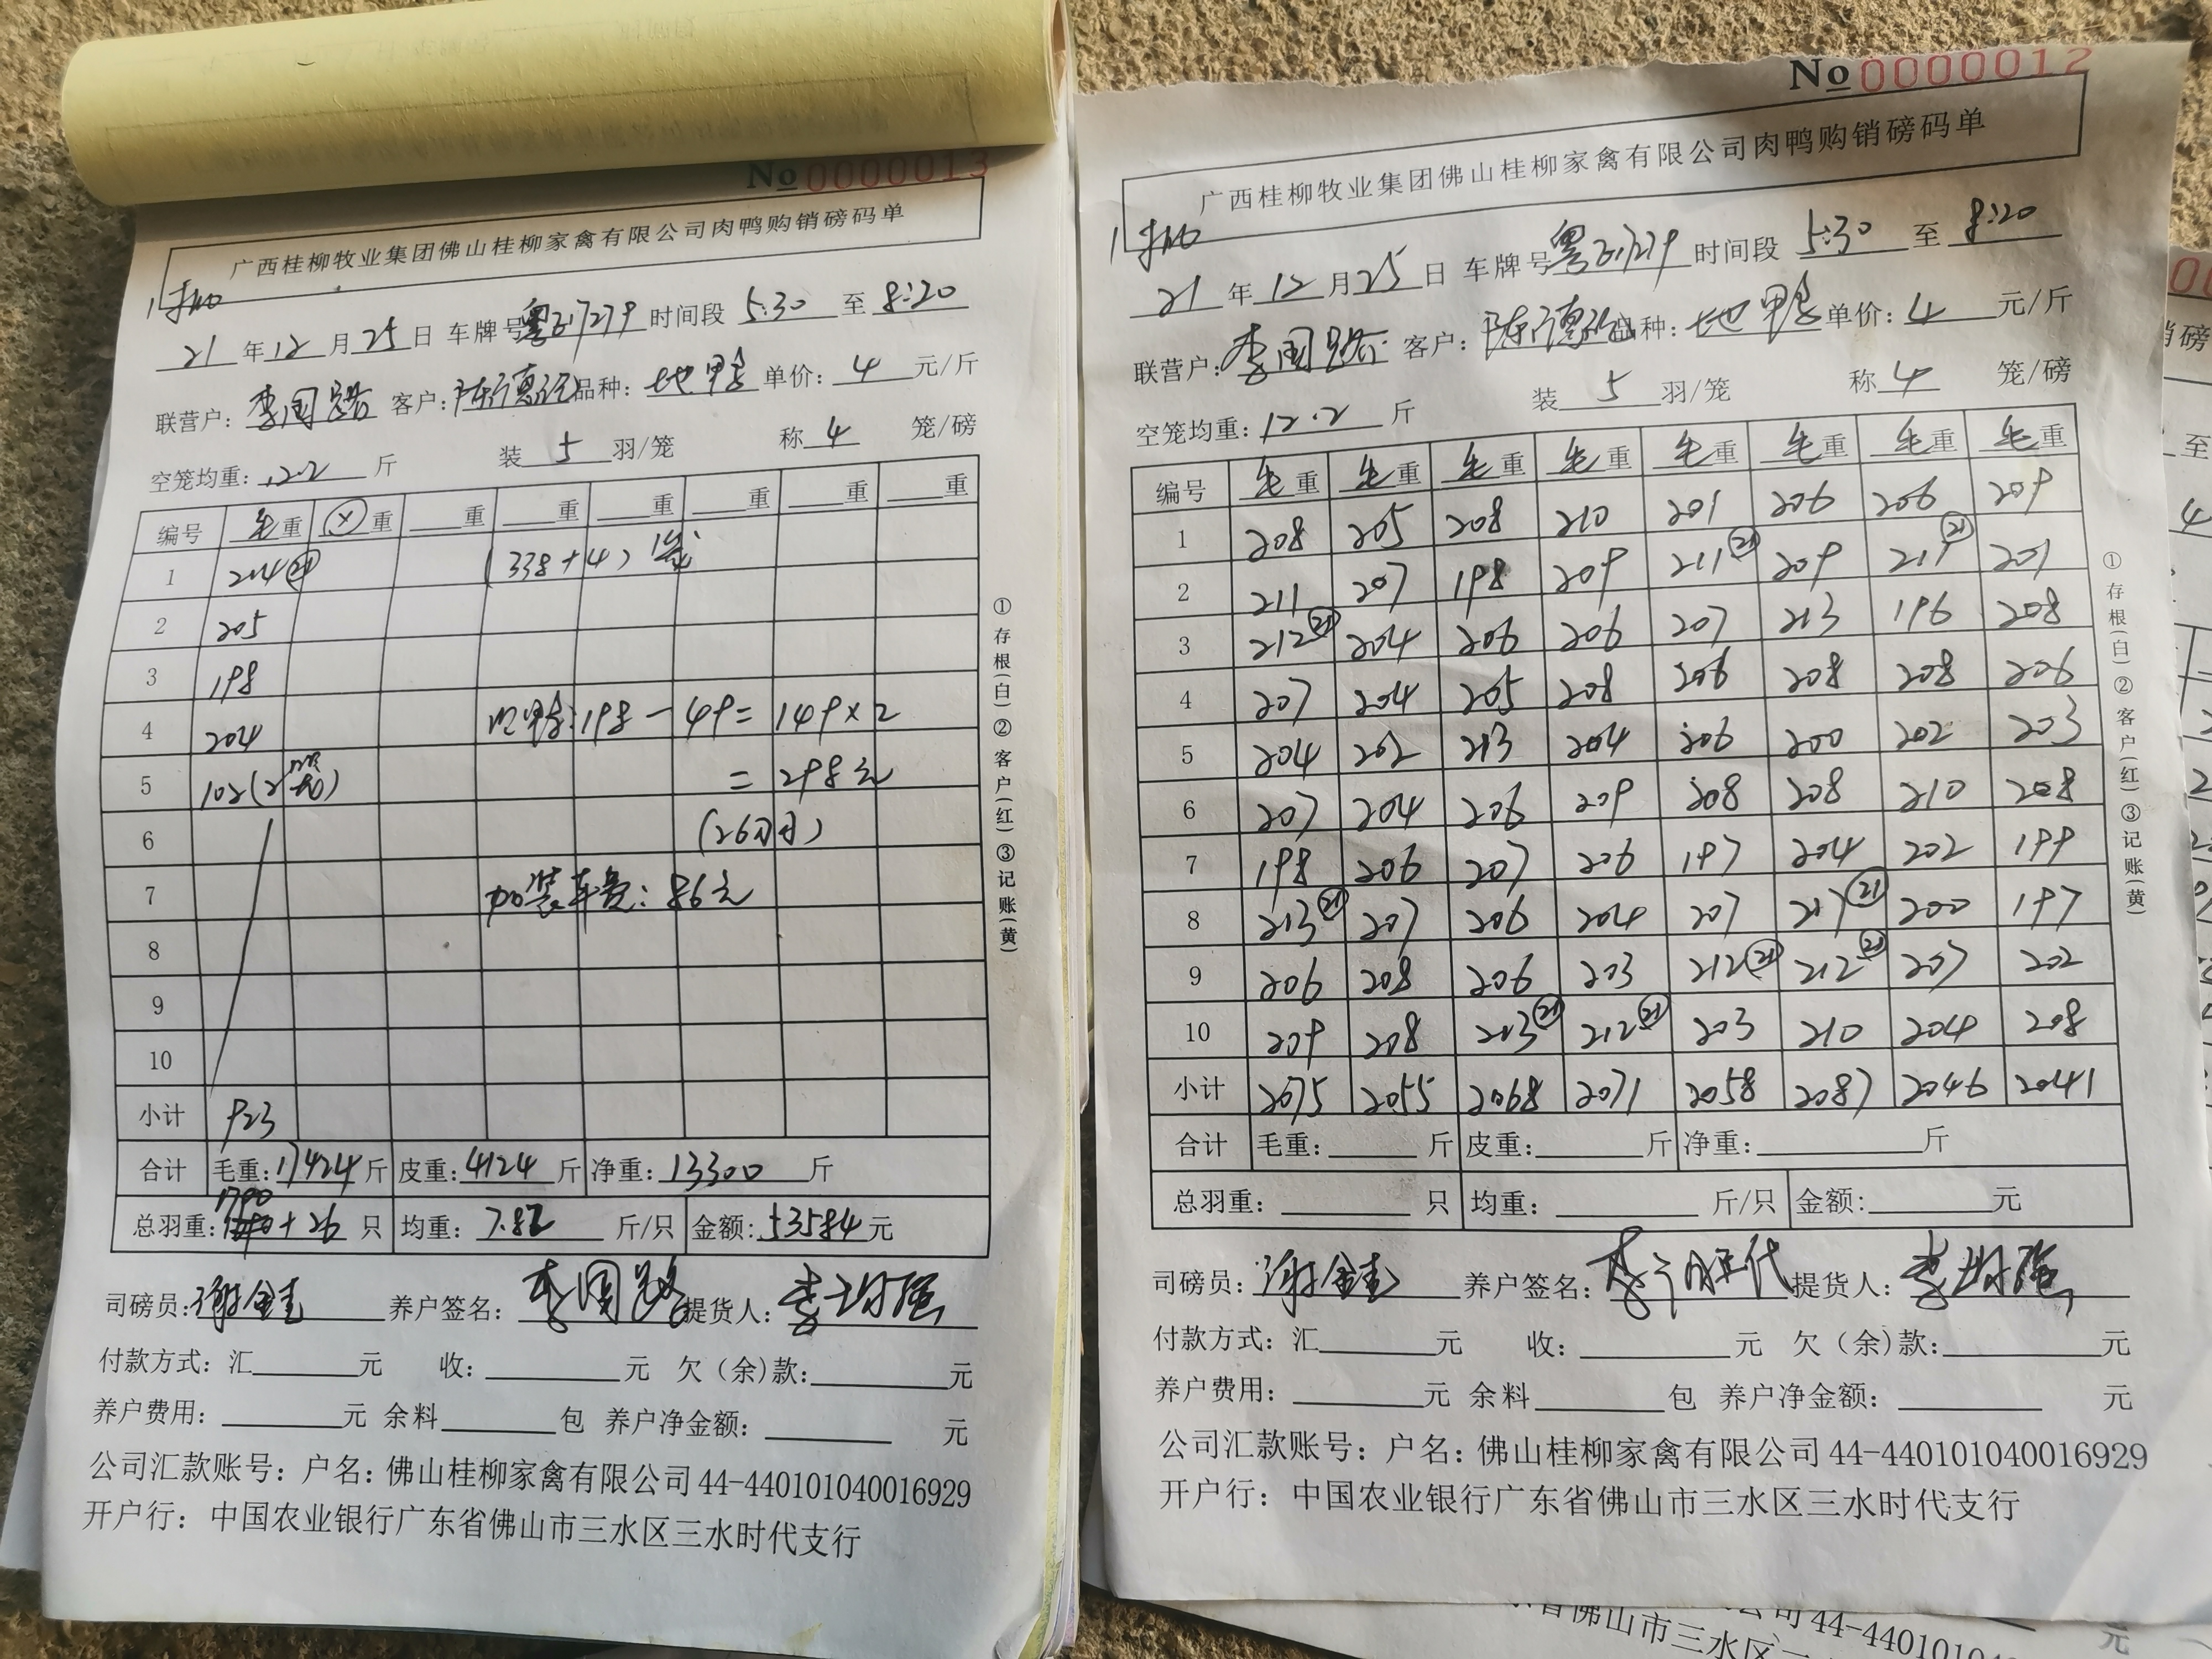 No 0000013
广西桂柳牧业集团佛山桂柳家禽有限公司肉鸭购销磅码单
21年12月25日 车牌号 时间段 5:30 至 8:20
联营户: 李国 客户: 陈德 品种: 地鸭 单价: 4 元/斤
空笼均重: 12.2 斤 装 5 羽/笼 称 4 笼/磅
编号 毛重 重 重 重 重 重 重 重
1 214 (21) (338+4)
2 205
3 198
4 204 198-49=149×2
5 102(2笼) =298元
6 (26只)
7 加装车费: 86元
8
9
10
小计 923
合计 毛重: 17424 斤 皮重: 4124 斤 净重: 13300 斤
总羽重: 1790+26 只 均重: 7.82 斤/只 金额: 53584 元
司磅员: 谢金 养户签名: 李国 提货人: 李
付款方式: 汇 元 收: 元 欠(余)款: 元
养户费用: 元 余料 包 养户净金额: 元
公司汇款账号: 户名: 佛山桂柳家禽有限公司 44-440101040016929
开户行: 中国农业银行广东省佛山市三水区三水时代支行
①存根(白)②客户(红)③记账(黄)
No 0000012
广西桂柳牧业集团佛山桂柳家禽有限公司肉鸭购销磅码单
21年12月25日 车牌号 时间段 5:30 至 8:20
联营户: 李国 客户: 陈德 品种: 地鸭 单价: 4 元/斤
空笼均重: 12.2 斤 装 5 羽/笼 称 4 笼/磅
编号 毛重 毛重 毛重 毛重 毛重 毛重 毛重 毛重
1 208 205 208 210 201 206 206 209
2 211 207 198 209 211 (21) 209 211 (21) 201
3 212 (21) 204 206 206 207 213 196 208
4 207 204 205 208 206 208 208 206
5 204 202 213 204 206 200 202 203
6 207 204 206 209 208 208 210 208
7 198 206 207 206 197 204 202 199
8 213 (21) 207 206 204 207 217 (21) 200 197
9 206 208 206 203 212 (21) 212 (21) 207 202
10 209 208 213 (21) 212 (21) 203 210 204 208
小计 2075 2055 2068 2071 2058 2087 2046 2041
合计 毛重: 斤 皮重: 斤 净重: 斤
总羽重: 只 均重: 斤/只 金额: 元
司磅员: 谢金 养户签名: 李 代 提货人: 李
付款方式: 汇 元 收: 元 欠(余)款: 元
养户费用: 元 余料 包 养户净金额: 元
公司汇款账号: 户名: 佛山桂柳家禽有限公司 44-440101040016929
开户行: 中国农业银行广东省佛山市三水区三水时代支行
①存根(白)②客户(红)③记账(黄)